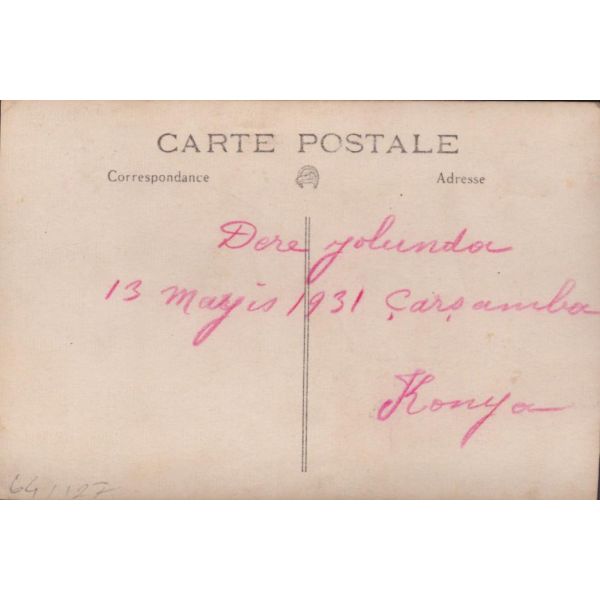 CARTE POSTALE
Correspondance Adresse
Dere yolunda
13 mayis 1931 Çarşamba
Konya
64/127